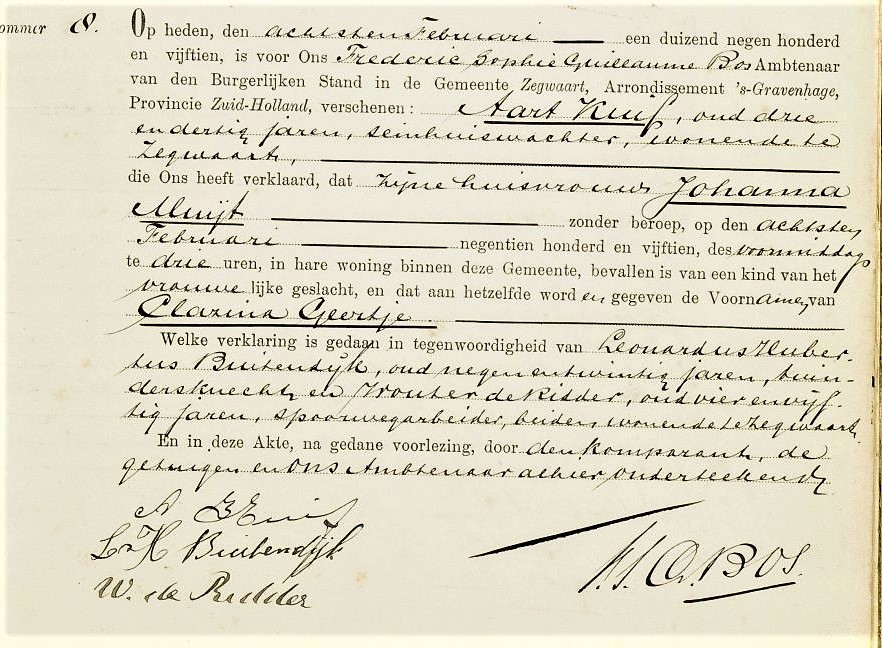 ommer 8. Op heden, den achtsten Februari een duizend negen honderd
en vijftien, is voor Ons Frederic Sophie Guillaume Bos Ambtenaar
van den Burgerlijken Stand in de Gemeente Zegwaart, Arrondissement 's-Gravenhage,
Provincie Zuid-Holland, verschenen: Aart Kuif, oud drie
en dertig jaren, seinhuiswachter, wonende te
Zegwaart,
die Ons heeft verklaard, dat zijne huisvrouw Johanna
Muijt zonder beroep, op den achtsten
Februari negentien honderd en vijftien, des voormiddags
te drie uren, in hare woning binnen deze Gemeente, bevallen is van een kind van het
vrouwelijke geslacht, en dat aan hetzelfde worden gegeven de Voornamen van
Clazina Geertje.
Welke verklaring is gedaan in tegenwoordigheid van Leonardus Huber-
tus Buitendijk, oud negen en twintig jaren, tuin-
dersknecht, en Wouter de Ridder, oud vier en vijf-
tig jaren, spoorwegarbeider, beiden wonende te Zegwaart.
En in deze Akte, na gedane voorlezing, door den komparant, de
getuigen en Ons Ambtenaar alhier onderteekend
A Kuif
L H Buitendijk
W. de Ridder
F.S.G. BOS.